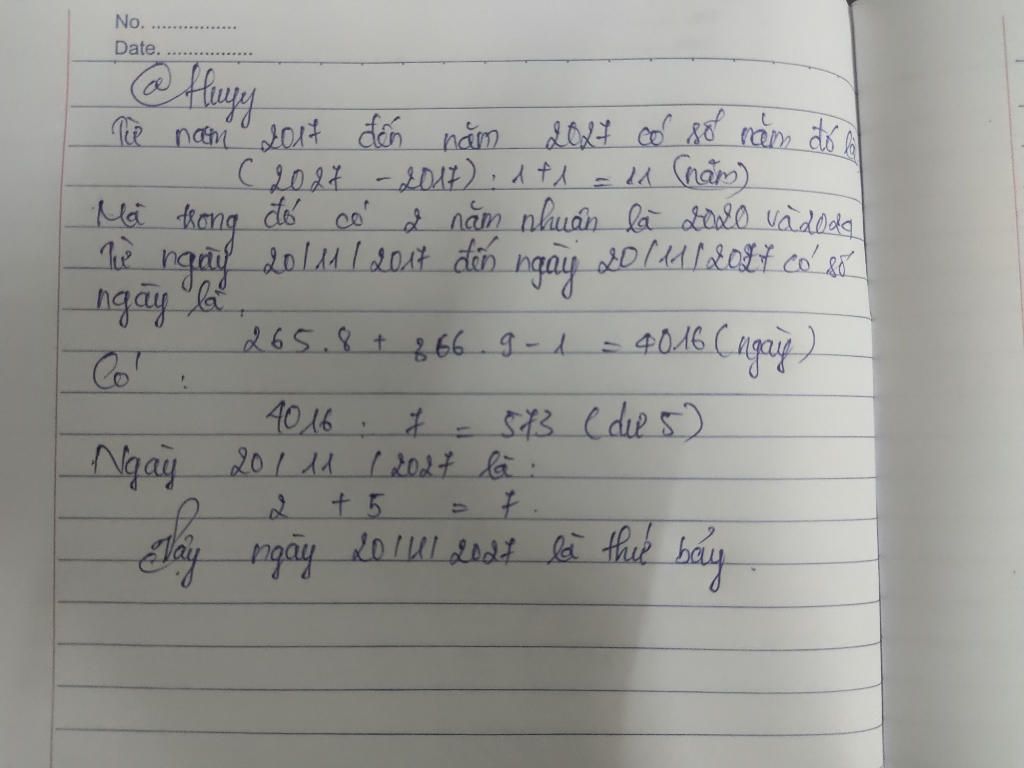 No. ................
Date. ................
@Huyy
Từ năm 2017 đến năm 2027 có số năm đó là
(2027 - 2017) : 1 + 1 = 11 (năm)
Mà trong đó có 2 năm nhuận là 2020 và 2024
Từ ngày 20/11/2017 đến ngày 20/11/2027 có số
ngày là.
265.8 + 366.9 - 1 = 4016 (ngày)
Có :
4016 : 7 = 573 (dư 5)
Ngày 20/11/2027 là:
2 + 5 = 7.
Vậy ngày 20/11/2027 là thứ bảy.